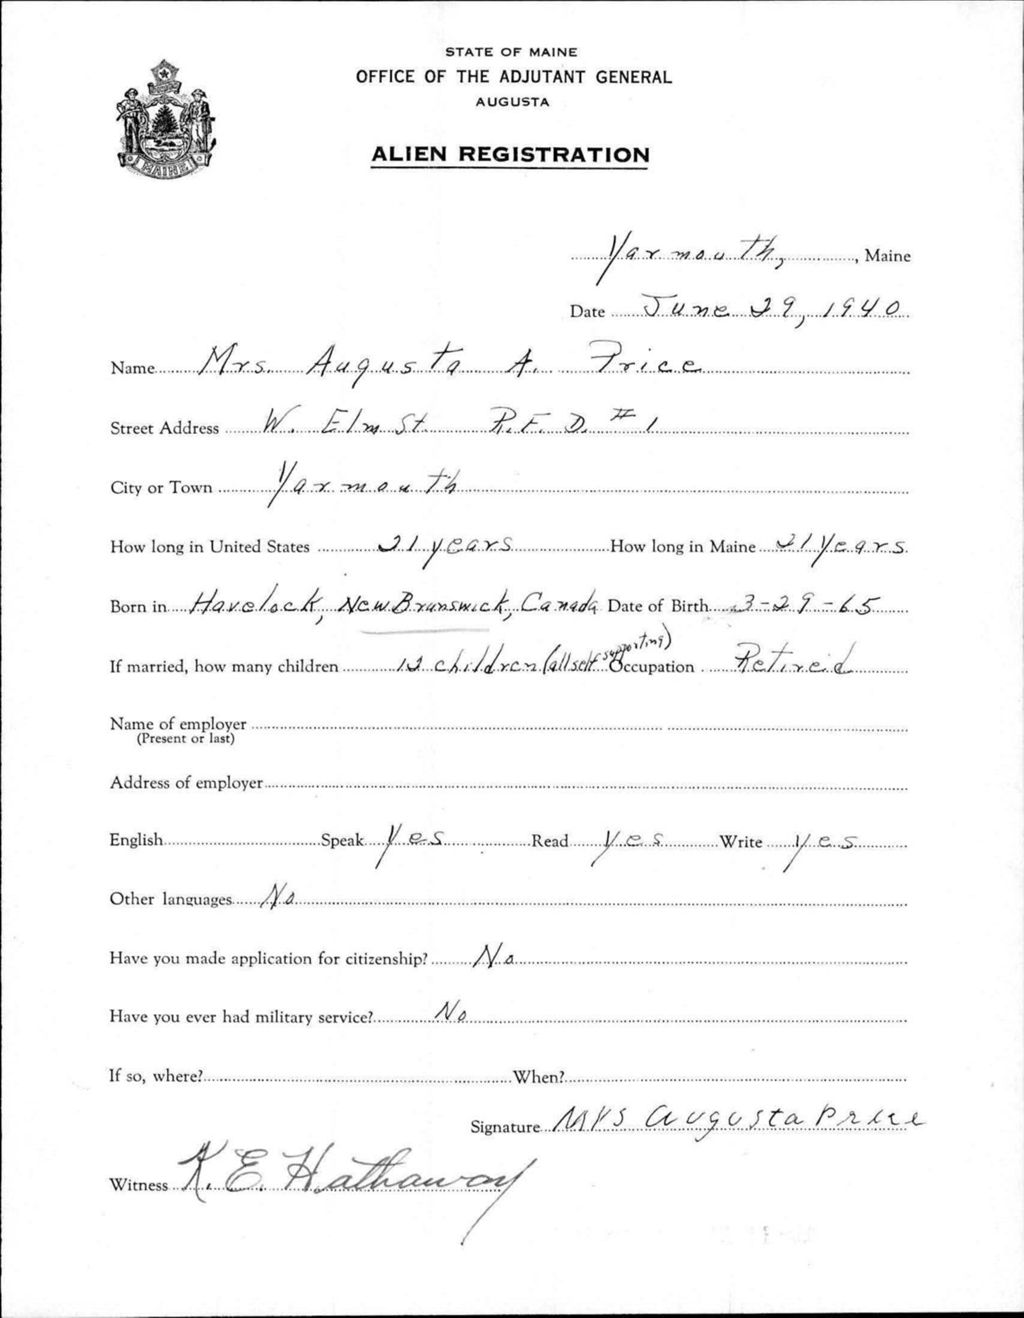 STATE OF MAINE
OFFICE OF THE ADJUTANT GENERAL
AUGUSTA
ALIEN REGISTRATION
MAINE
Yarmouth, , Maine
Date June 29, 1940
Name Mrs. Augusta A. Price
Street Address W. Elm St. R.F.D. #1
City or Town Yarmouth
How long in United States 21 years How long in Maine 21 Years.
Born in Havelock, New Brunswick, Canada Date of Birth 3-29-65
If married, how many children 12 children (all self supporting) Occupation Retireid
Name of employer
(Present or last)
Address of employer
English Speak Yes Read Yes Write Yes
Other languages No
Have you made application for citizenship? No
Have you ever had military service? No
If so, where? When?
Signature Mrs Augusta Price
Witness K. E. Hathaway